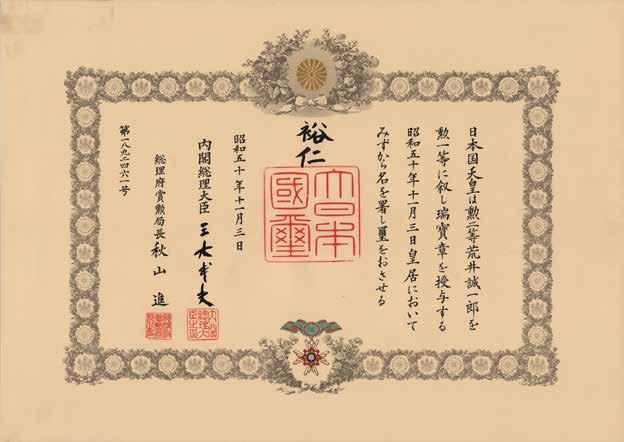 日本国天皇は勲二等荒井誠一郎を
勲一等に叙し瑞寶章を授与する
昭和五十年十一月三日皇居において
みずから名を署し璽をおさせる
裕仁
大日本
國璽
昭和五十年十一月三日
内閣総理大臣 三木武夫
総理府賞勲局長 秋山進
第一八九二四六一号